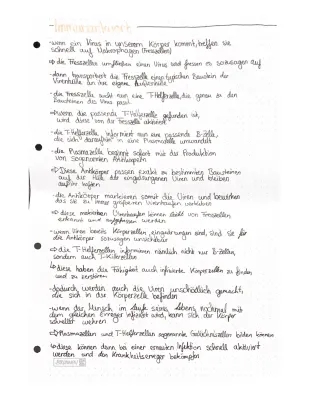 -wenn ein Virus in unseren Körper kommt, treffen sie
schnell auf Makrophagen (Fresszellen)
⇒ die Fresszellen umfließen einen Virus und fressen es sozusagen auf
-dann transportiert die Fresszelle einen typischen Baustein der
Virenhülle an ihre eigene Außenseite
-die Fresszelle sucht nun eine T-Helferzelle, die genau zu den
Bausteinen des Virus passt
⇒ wenn die passende T-Helferzelle gefunden ist,
wird diese von der Fresszelle aktiviert
-die T-Helferzelle informiert nun eine passende B-Zelle,
die sich daraufhin in eine Plasmazelle umwandelt
-die Plasmazelle beginnt sofort mit der Produktion
von sogenannten Antikörpern
⇒ Diese Antikörper passen exakt zu bestimmten Bausteinen
auf der Hülle der eingedrungenen Viren und bleiben
daran haften
-die Antikörper markieren somit die Viren und bewirken
das sie zu immer größeren Virenhaufen verklumpen
⇒ diese Virenhaufen können von Fresszellen
erkannt und werden
-wenn Viren bereits Körperzellen eingedrungen sind, sind sie für
die Antikörper sozusagen unsichtbar
⇒ die T-Helferzellen informieren nämlich nicht nur B-Zellen,
sondern auch T-Killerzellen
↳ diese haben die Fähigkeit auch infizierte Körperzellen zu finden
und zu zerstören
-dadurch werden auch die Viren unschädlich gemacht,
die sich in der Körperzelle befinden
-wenn der Mensch im Laufe seines Lebens nochmal mit
dem gleichen Erreger infiziert wird, kann sich der Körper
schneller wehren
⇒ Plasmazellen und T-Helferzellen sogenannte Gedächtniszellen bilden können
↳ diese können dann bei einer erneuten Infektion schnell aktiviert
werden und den Krankheitserreger bekämpfen